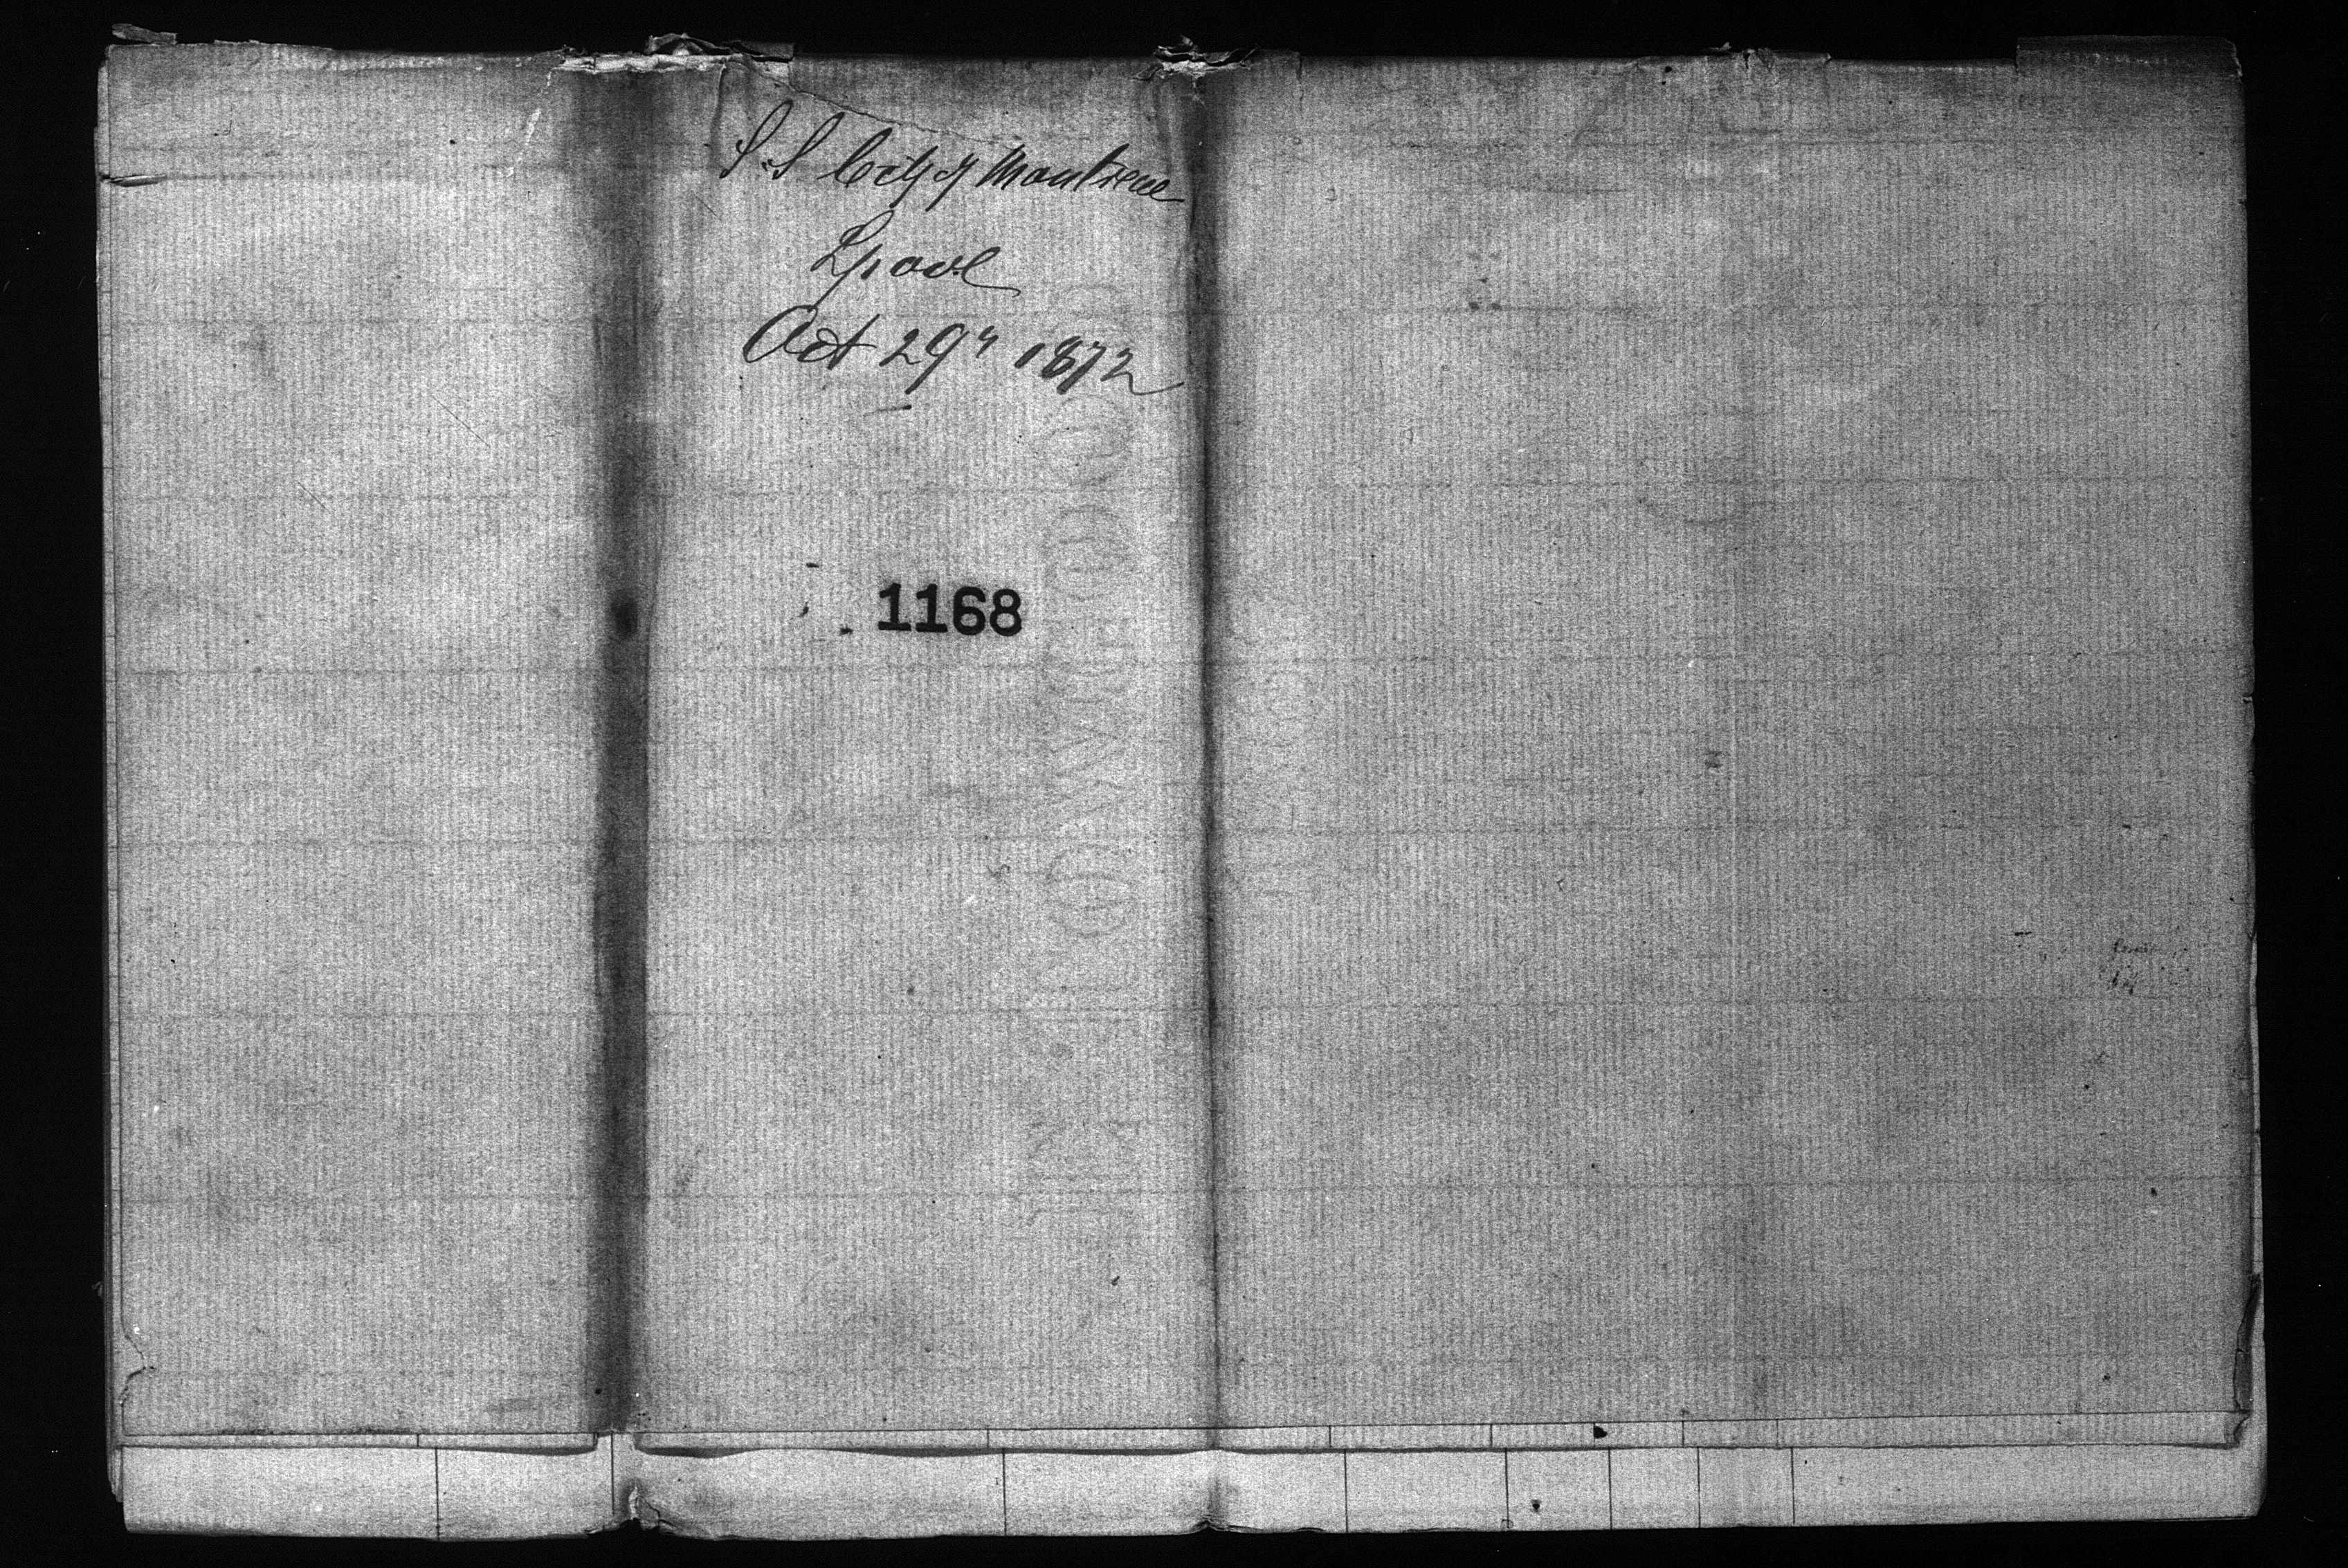 S.S City of Montreal
Lpool
Oct 29" 1872
1168